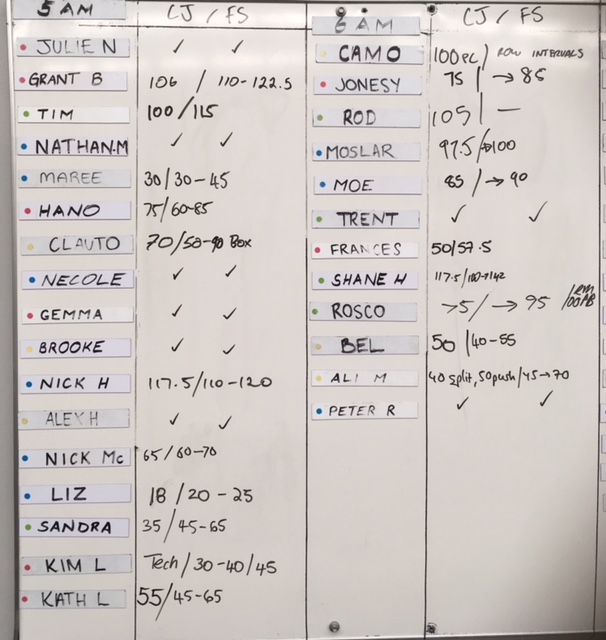 5 AM CJ / FS
JULIE N ✓ ✓
GRANT B 106 / 110-122.5
TIM 100 / 115
NATHAN.M ✓ ✓
MAREE 30/30-45
HANO 75/60-85
CLAUTO 70/50-90 Box
NECOLE ✓ ✓
GEMMA ✓ ✓
BROOKE ✓ ✓
NICK H 117.5/110-120
ALEX H ✓ ✓
NICK Mc 65/60-70
LIZ 18/20-25
SANDRA 35/45-65
KIM L Tech/30-40/45
KATH L 55/45-65
6 AM CJ / FS
CAMO 100PC/ ROW INTERVALS
JONESY 75 / → 85
ROD 105 / —
MOSLAR 97.5/→100
MOE 85 / → 90
TRENT ✓ ✓
FRANCES 50/57.5
SHANE H 117.5/
ROSCO 75/ → 95
BEL 50 /40-55
ALI M 40 split, 50push/45→70
PETER R ✓ ✓